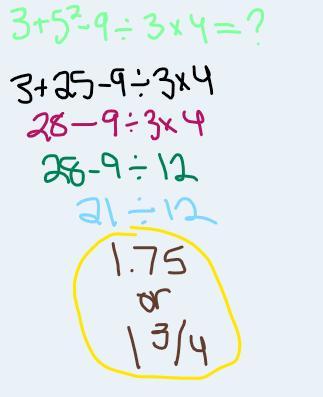 3+5²-9÷3×4=?
3+25-9÷3×4
28-9÷3×4
28-9÷12
21÷12
1.75
or
1 3/4